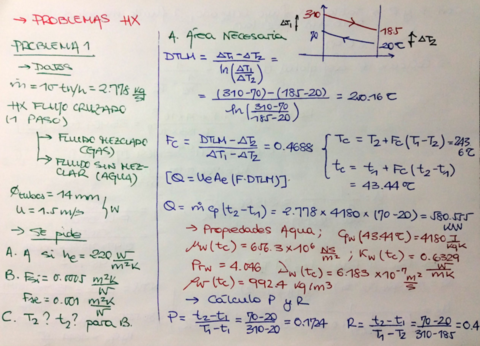 → PROBLEMAS HX
PROBLEMA 1
→ Datos
ṁ = 10 tn/h = 2.778 kg/s
HX FLUJO CRUZADO
(1 PASO)
→ FLUIDO MEZCLADO
(GAS)
→ FLUIDO SIN MEZ-
CLAR (AGUA)
Ø tubos = 14 mm
u = 1.5 m/s } W
→ Se pide
A. A si he = 220 W/m²K
B. Fsi = 0.0005 m²K/W
Fse = 0.001 m²K/W
C. T₂? t₂? para B.
A. Área Necesaria
ΔT₁ 310 185
70 20℃ ΔT₂
DTLM = (ΔT₁ - ΔT₂) / ln(ΔT₁/ΔT₂) =
= ((310-70) - (185-20)) / ln((310-70)/(185-20)) = 200.16 ℃
Fc = (DTLM - ΔT₂) / (ΔT₁ - ΔT₂) = 0.4688
Tc = T₂ + Fc(T₁-T₂) = 243.6 ℃
tc = t₁ + Fc(t₂-t₁) = 43.44 ℃
[Q = Ue Ae (F·DTLM)].
Q = ṁ cp (t₂-t₁) = 2.778 · 4180 · (70-20) = 580.555 kW
→ Propiedades Agua; Cpw (43.44℃) = 4180 J/kgK
μw(tc) = 656.3×10⁶ Ns/m² ; Kw(tc) = 0.6329 W/mK
Prw = 4.046 νw(tc) = 6.183×10⁻⁷ m²/s
ρw(tc) = 992.4 kg/m³
→ Cálculo P y R
P = (t₂-t₁)/(T₁-t₁) = (70-20)/(310-20) = 0.1724 R = (t₂-t₁)/(T₁-T₂) = (70-20)/(310-185) = 0.4